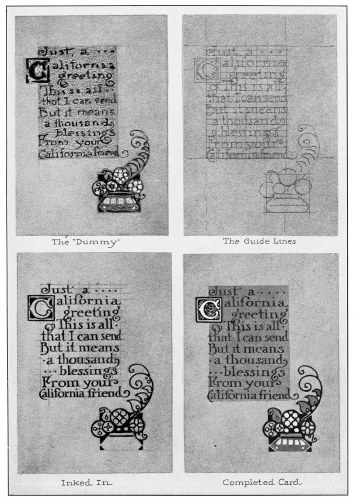 Just, a ....
California
greeting
This is all
that I can send
But it means
a thousand
blessings
From your
California friend
The "Dummy"
Just, a ....
California
greeting
This is all
that I can send
But it means
a thousand
blessings
From your
California friend
The Guide Lines
Just a ....
California
greeting
This is all
that I can send
But it means
a thousand
... blessings
From your
California friend
Inked In
Just a ....
California
greeting
This is all
that I can send
But it means
a thousand
... blessings
From your
California friend
Completed Card